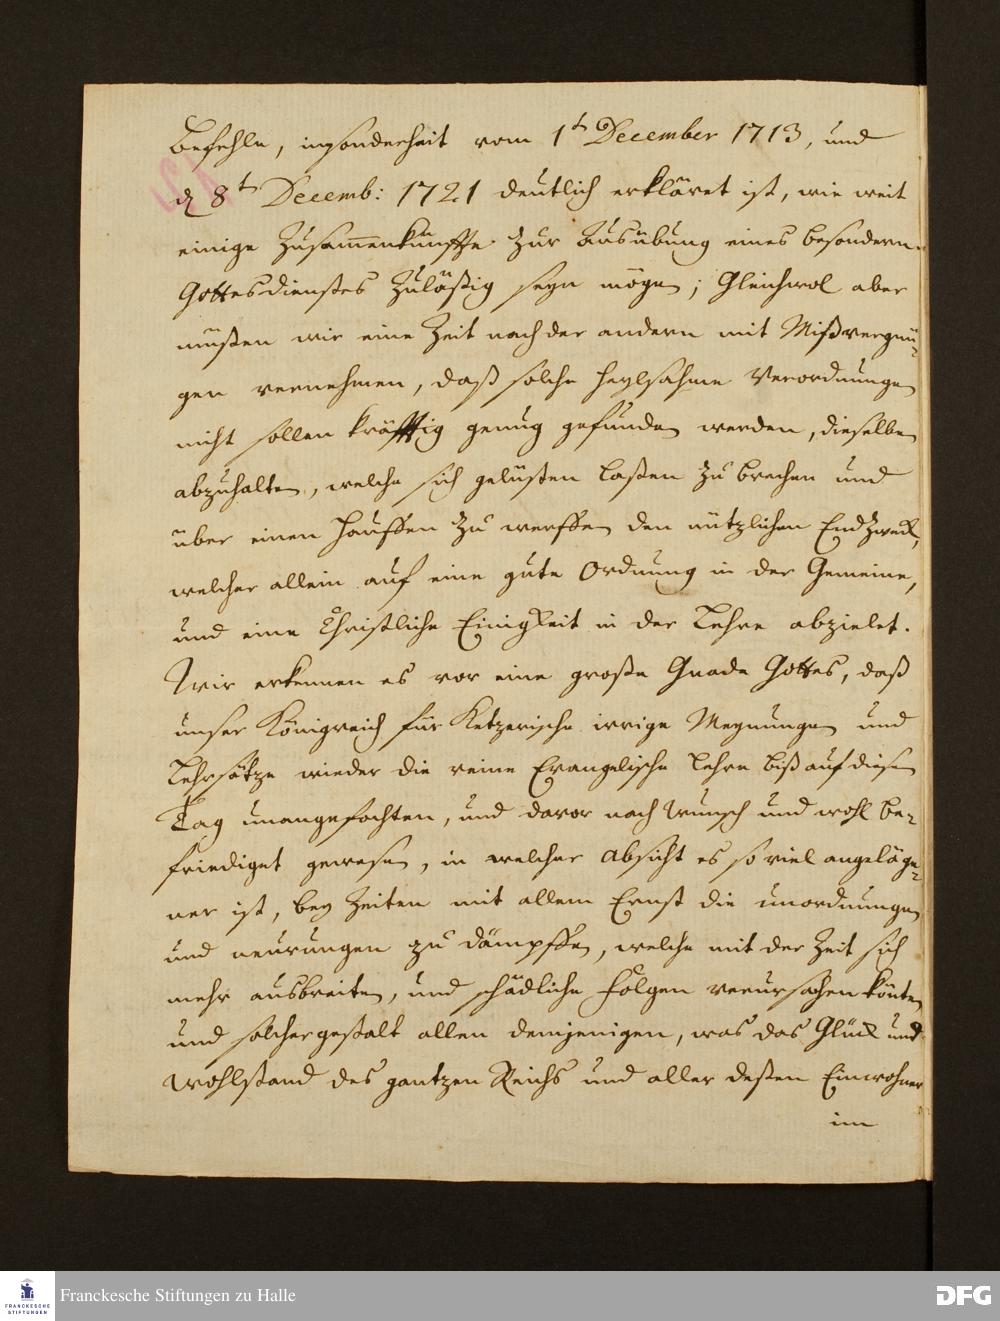 Befehle, insonderheit vom 1t December 1713, und
d 8t Decemb: 1721 deutlich erkläret ist, wie weit
einige Zusammenkünffte zur Ausübung eines besondern
Gottesdienstes zuläßig seyn mögen; Gleichwol aber
müßen wir eine Zeit nach der andern mit Mißvergnü-
gen vernehmen, daß solche heylsahme Verordnungen
nicht sollen kräfftig genug gefunden werden, dieselben
abzuhalten, welche sich gelüsten laßen zu brechen und
über einen Hauffen zu werffen den nützlichen Endzweck,
welcher allein auf eine gute Ordnung in der Gemeine,
und eine Christliche Einigkeit in der Lehre abzielet.
Wir erkennen es vor eine große Gnade Gottes, daß
unser Königreich für Ketzerische irrige Meynungen und
Lehrsätze wieder die reine Evangelische Lehre biß auf diesen
Tag unangefochten, und davor nach Wunsch und wohl be-
friediget gewesen, in welcher Absicht es so viel angeläge-
ner ist, bey Zeiten mit allem Ernst die Unordnungen
und neurungen zu dämpffen, welche mit der Zeit sich
mehr ausbreiten, und schädliche Folgen verursachen könten
und solchergestalt allen demjenigen, was das Glück und
Wohlstand des gantzen Reichs und aller deßen Einwohner
im
Franckesche Stiftungen zu Halle
FRANCKESCHE
STIFTUNGEN
DFG